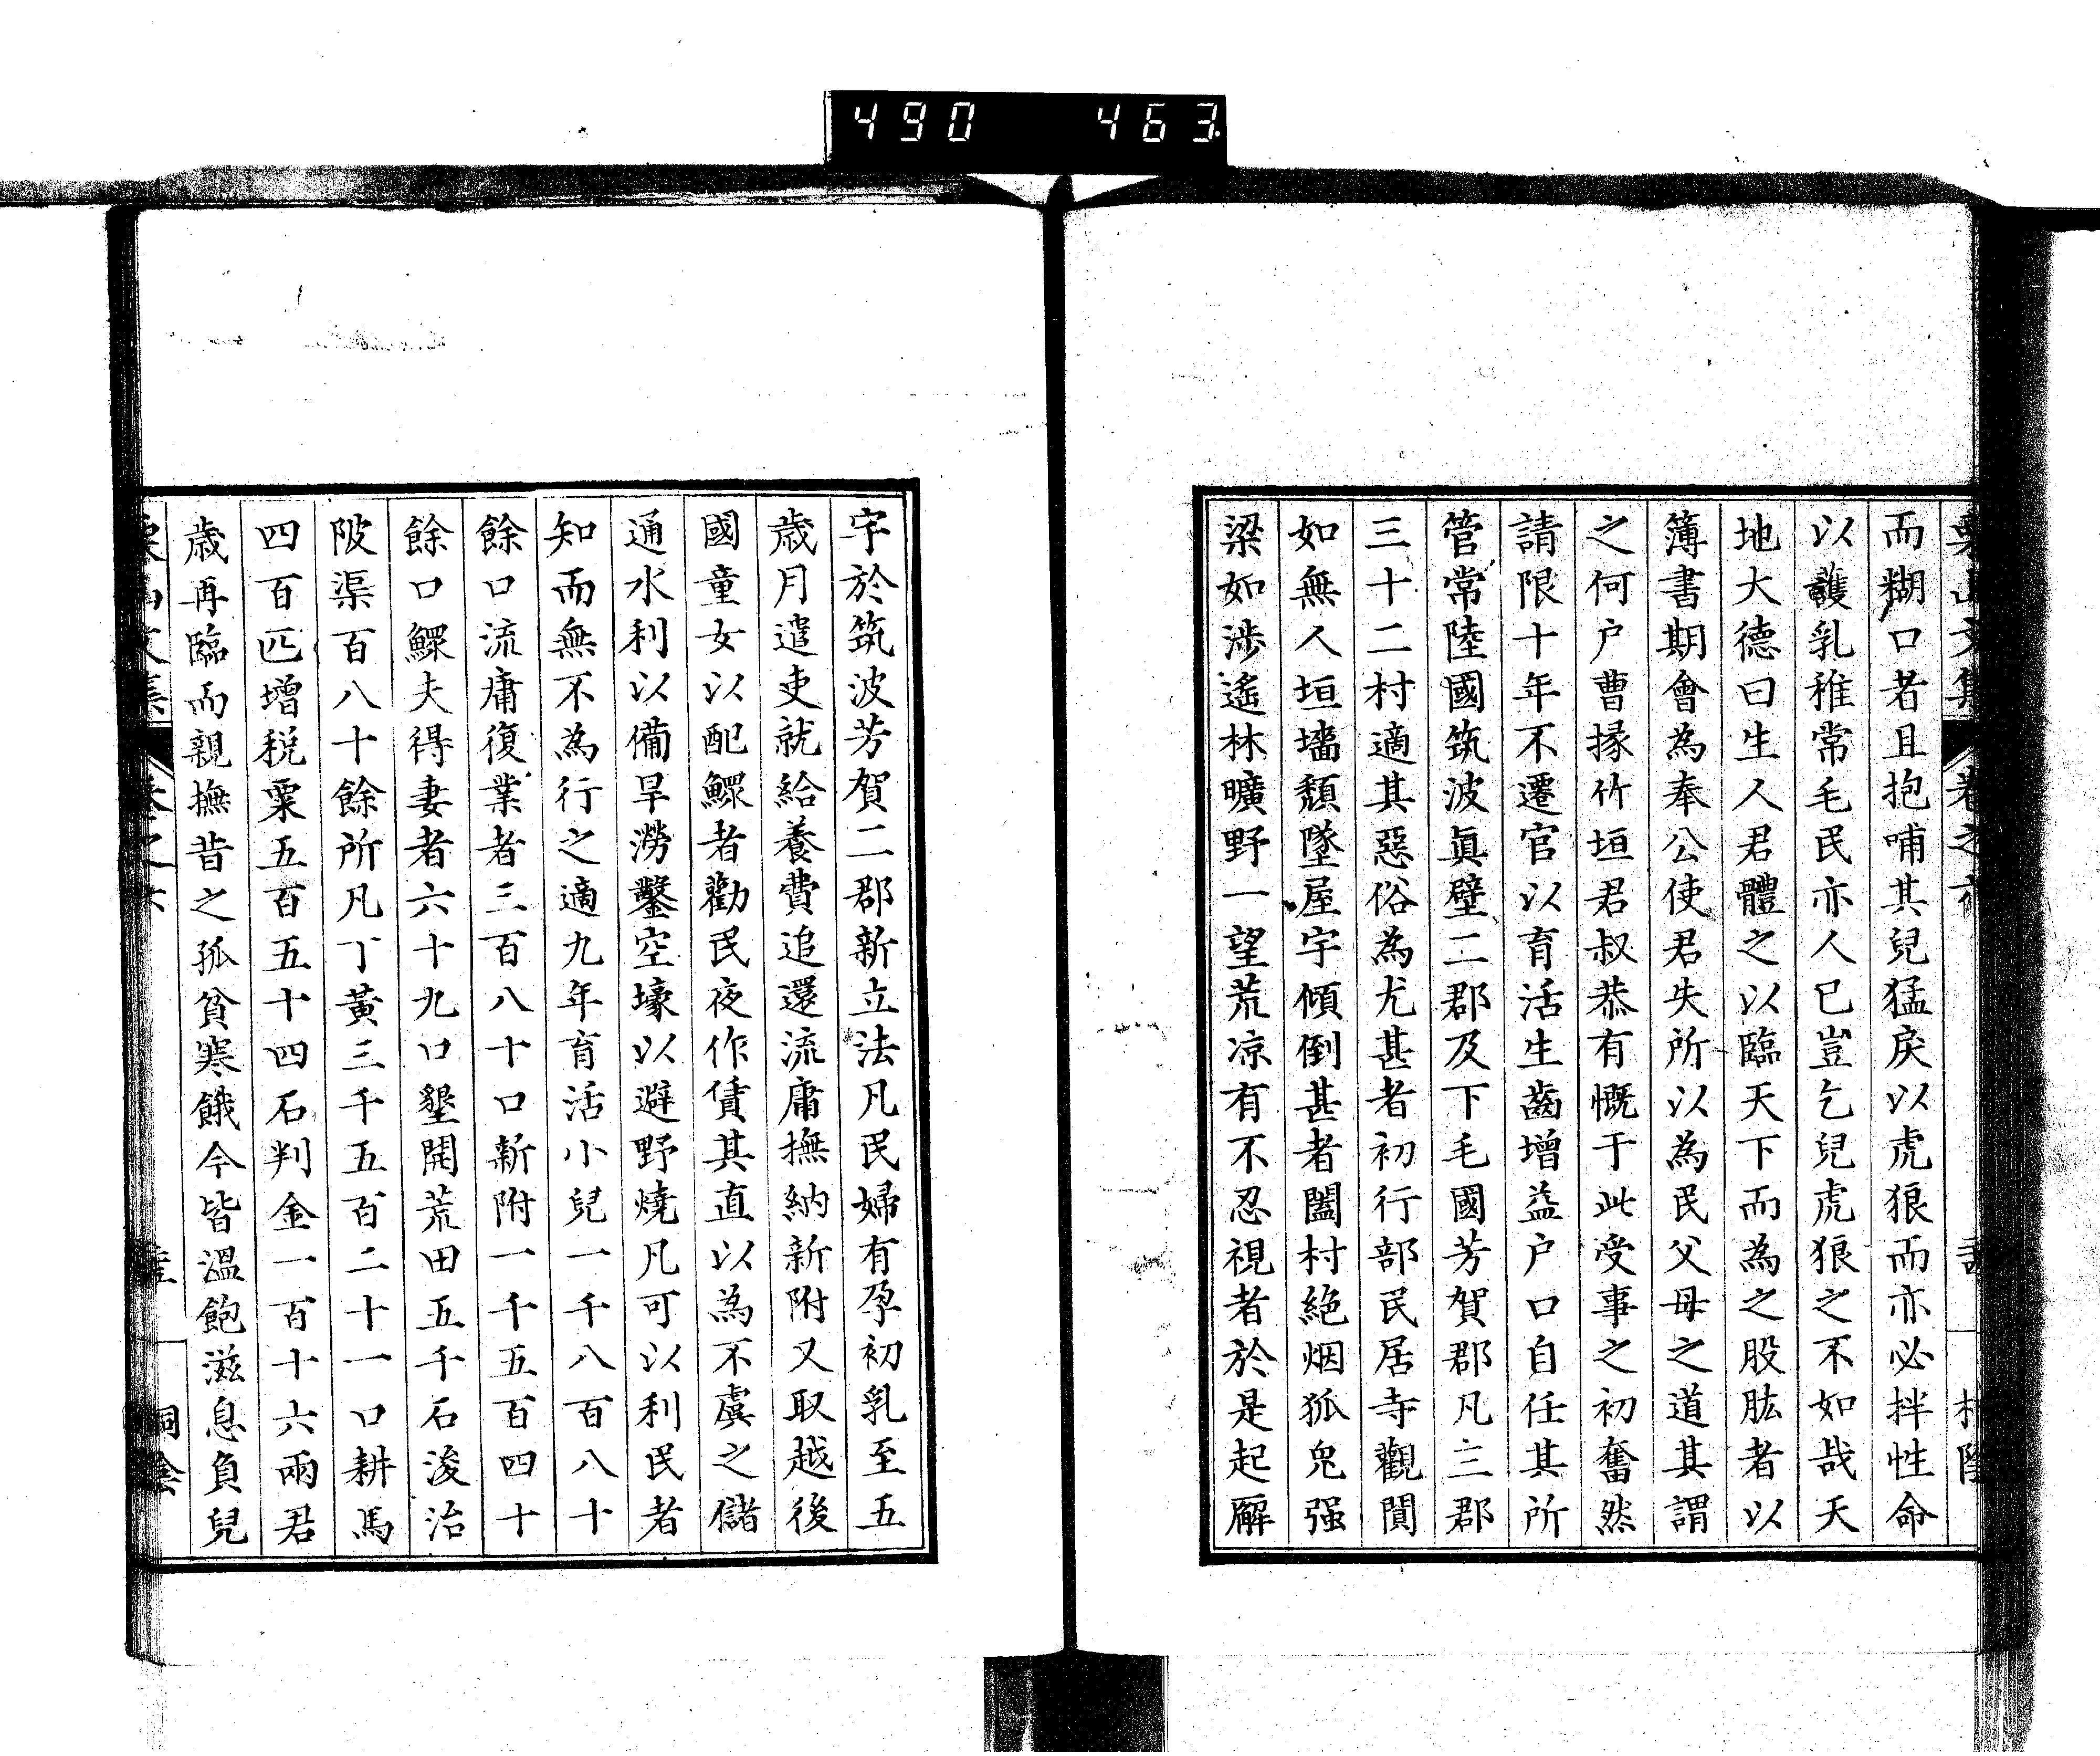 490 463
栗山文集 卷之六
而糊口者且抱哺其兒猛戾以虎狼而亦必拌性命
以護乳稚常毛民亦人已豈乞兒虎狼之不如哉天
地大德曰生人君體之以臨天下而為之股肱者以
簿書期會為奉公使君失所以為民父母之道其謂
之何户曹掾竹垣君叔恭有慨于此受事之初奮然
請限十年不遷官以育活生齒增益户口自任其所
管常陸國筑波眞壁二郡及下毛國芳賀郡凡三郡
三十二村適其惡俗為尤甚者初行部民居寺觀閴
如無人垣墻頹墜屋宇傾倒甚者闔村絶烟狐鬼强
梁如涉遙林曠野一望荒凉有不忍視者於是起廨
宇於筑波芳賀二郡新立法凡民婦有孕初乳至五
歳月遣吏就給養費追還流庸撫納新附又取越後
國童女以配鰥者勸民夜作賃其直以為不虞之儲
通水利以備旱澇鑿空壕以避野燒凡可以利民者
知而無不為行之適九年育活小兒一千八百八十
餘口流庸復業者三百八十口新附一千五百四十
餘口鰥夫得妻者六十九口墾開荒田五千石浚治
陂渠百八十餘所凡丁黃三千五百二十一口耕馬
四百匹增税粟五百五十四石判金一百十六兩君
歳再臨而親撫昔之孤貧寒餓今皆溫飽滋息負兒
栗山文集 卷之六